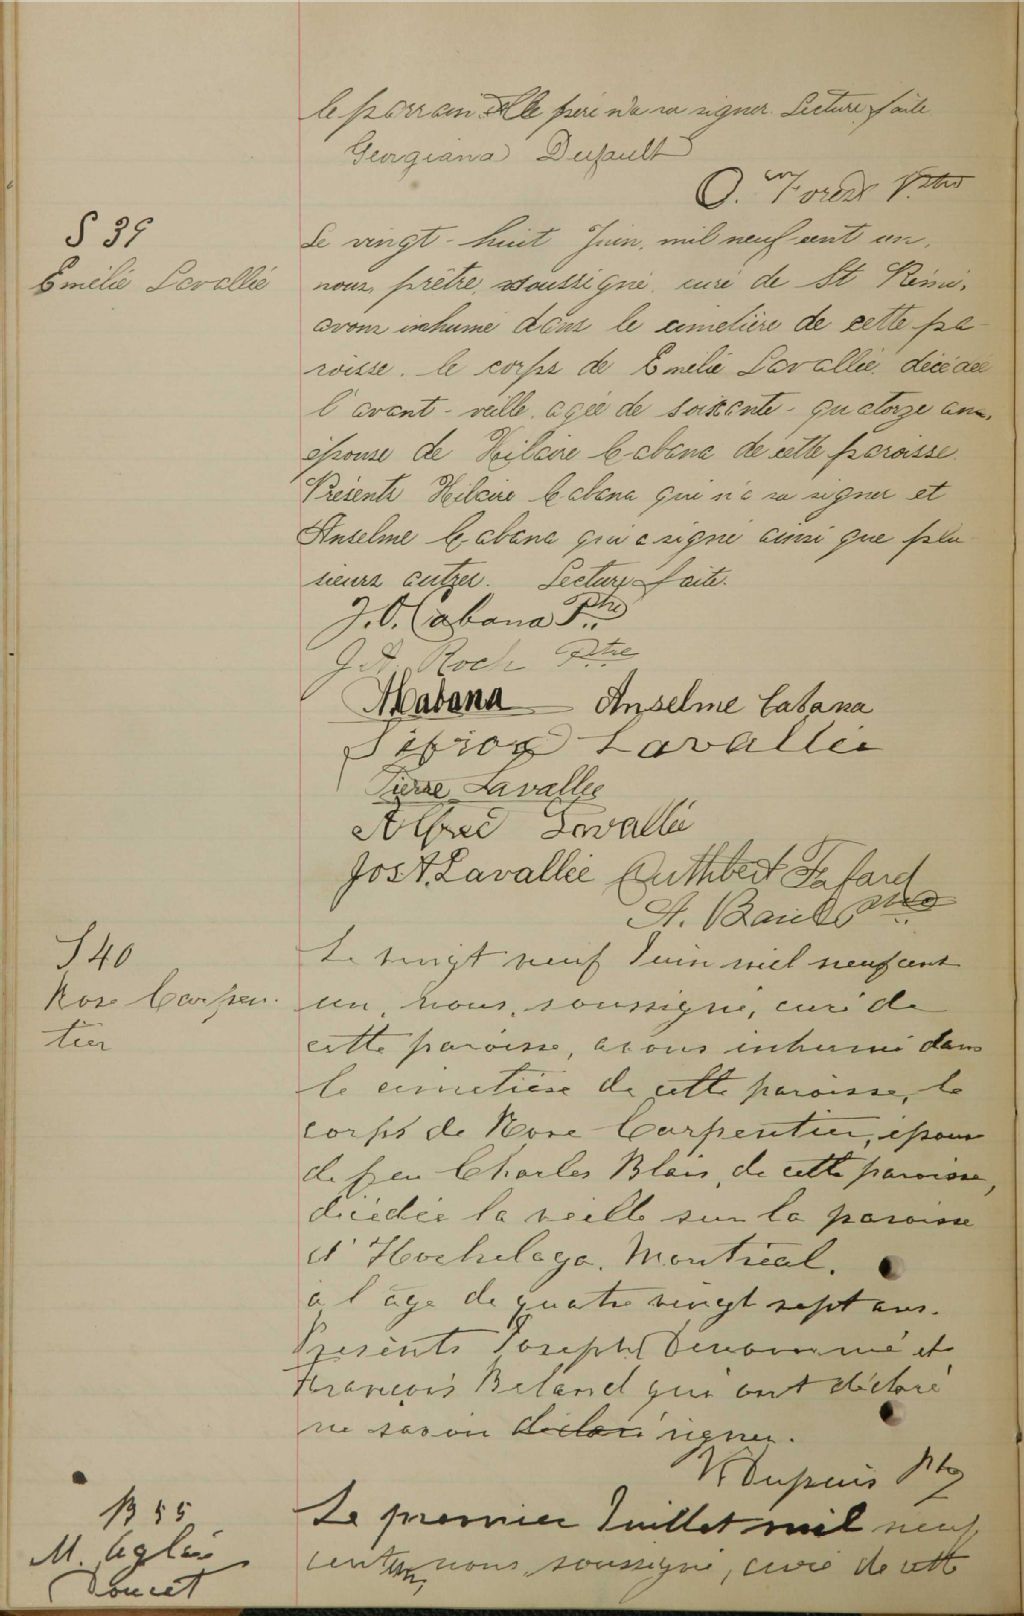 le parrain. Le père n'a su signer. Lecture faite
Georgiana Dufault
O. Forest Ptre
S 39
Emélie Lavallée
Le vingt-huit Juin, mil neuf cent un,
nous, prêtre, soussigné, curé de St Rémi,
avons inhumé dans le cimetière de cette pa-
roisse, le corps de Emélie Lavallée, décédée
l'avant-veille, agée de soixante-quatorze ans,
épouse de Hilaire Cabana de cette paroisse.
Présents Hilaire Cabana qui n'a su signer et
Anselme Cabana qui a signé ainsi que plu-
sieurs autres. Lecture faite.
J.O. Cabana Ptre
J A. Roch Ptre
Cabana Anselme Cabana
Lavallée
Pierre Lavallée
Alfred Lavallée
Jos A. Lavallée Cuthbert Fafard
A. Ptre
S 40
Rose Carpen-
tier
Le vingt neuf Juin mil neuf cent
un, nous, soussigné, curé de
cette paroisse, avons inhumé dans
le cimetière de cette paroisse, le
corps de Rose Carpentier, épouse
de feu Charles Blais, de cette paroisse,
décédée la veille sur la paroisse
d'Hochelaga, Montréal,
a l'âge de quatre vingt sept ans.
Présents Joseph Dénommé et
François Beland qui ont déclaré
ne savoir déclaré signer.
V. Dupuis ptre
B 55
M. Eglaé
Doucet
Le premier Juillet mil neuf
cent un, nous, soussigné, curé de cette